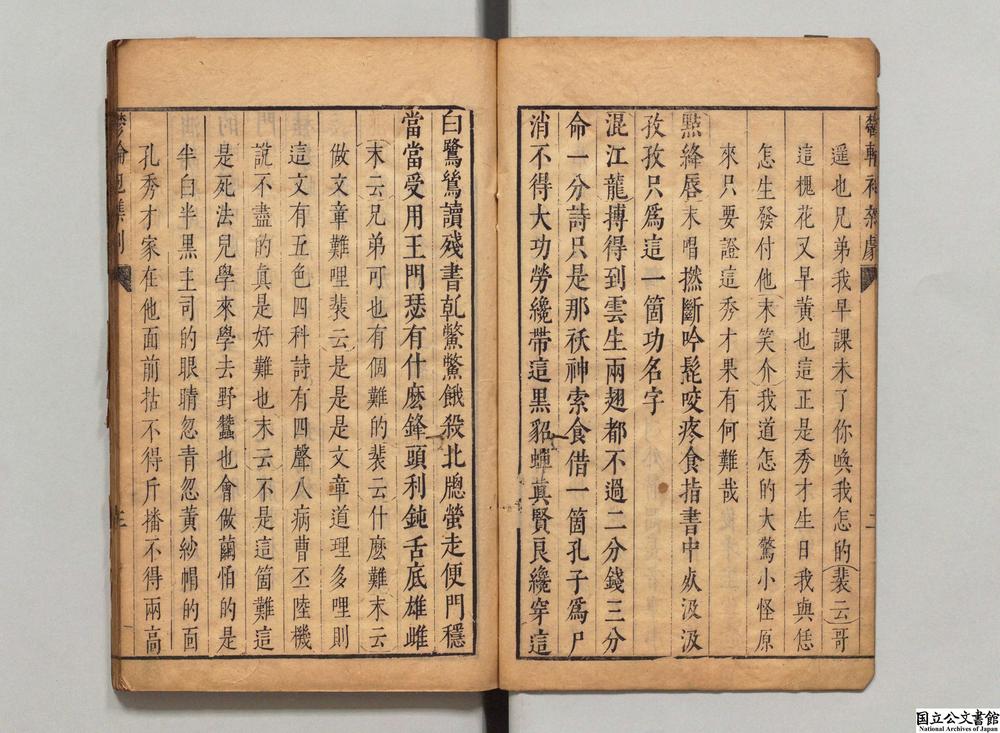 鬱輪袍雜劇
遥也兄弟我早課未了你喚我怎的(裴云)哥
這槐花又早黄也這正是秀才生日我與恁
怎生發付他(末笑介)我道怎的大驚小怪原
來只要證這秀才果有何難哉
點絳唇(末唱)撚斷吟髭咬疼食指書中㸔汲汲
孜孜只爲這一箇功名字
混江龍摶得到雲生兩翅都不過二分錢三分
命一分詩只是那祆神索食借一箇孔子爲尸
消不得大功勞纔帶這黒貂蟬真賢良纔穿這
白鷺鷥讀殘書乹鱉鱉餓殺北牕螢走便門穩
當當受用王門瑟有什麽鋒頭利鈍舌底雄雌
(末云)兄弟可也有個難的(裴云)什麽難(末云)
做文章難哩(裴云)是是是文章道理多哩則
這文有五色四科詩有四聲八病曹丕陸機
說不盡的真是好難也(末云)不是這箇難這
是死法兒學來學去野蠶也會做繭怕的是
半白半黒主司的眼睛忽青忽黄紗帽的面
孔秀才家在他面前拈不得斤播不得兩高
国立公文書館
National Archives of Japan